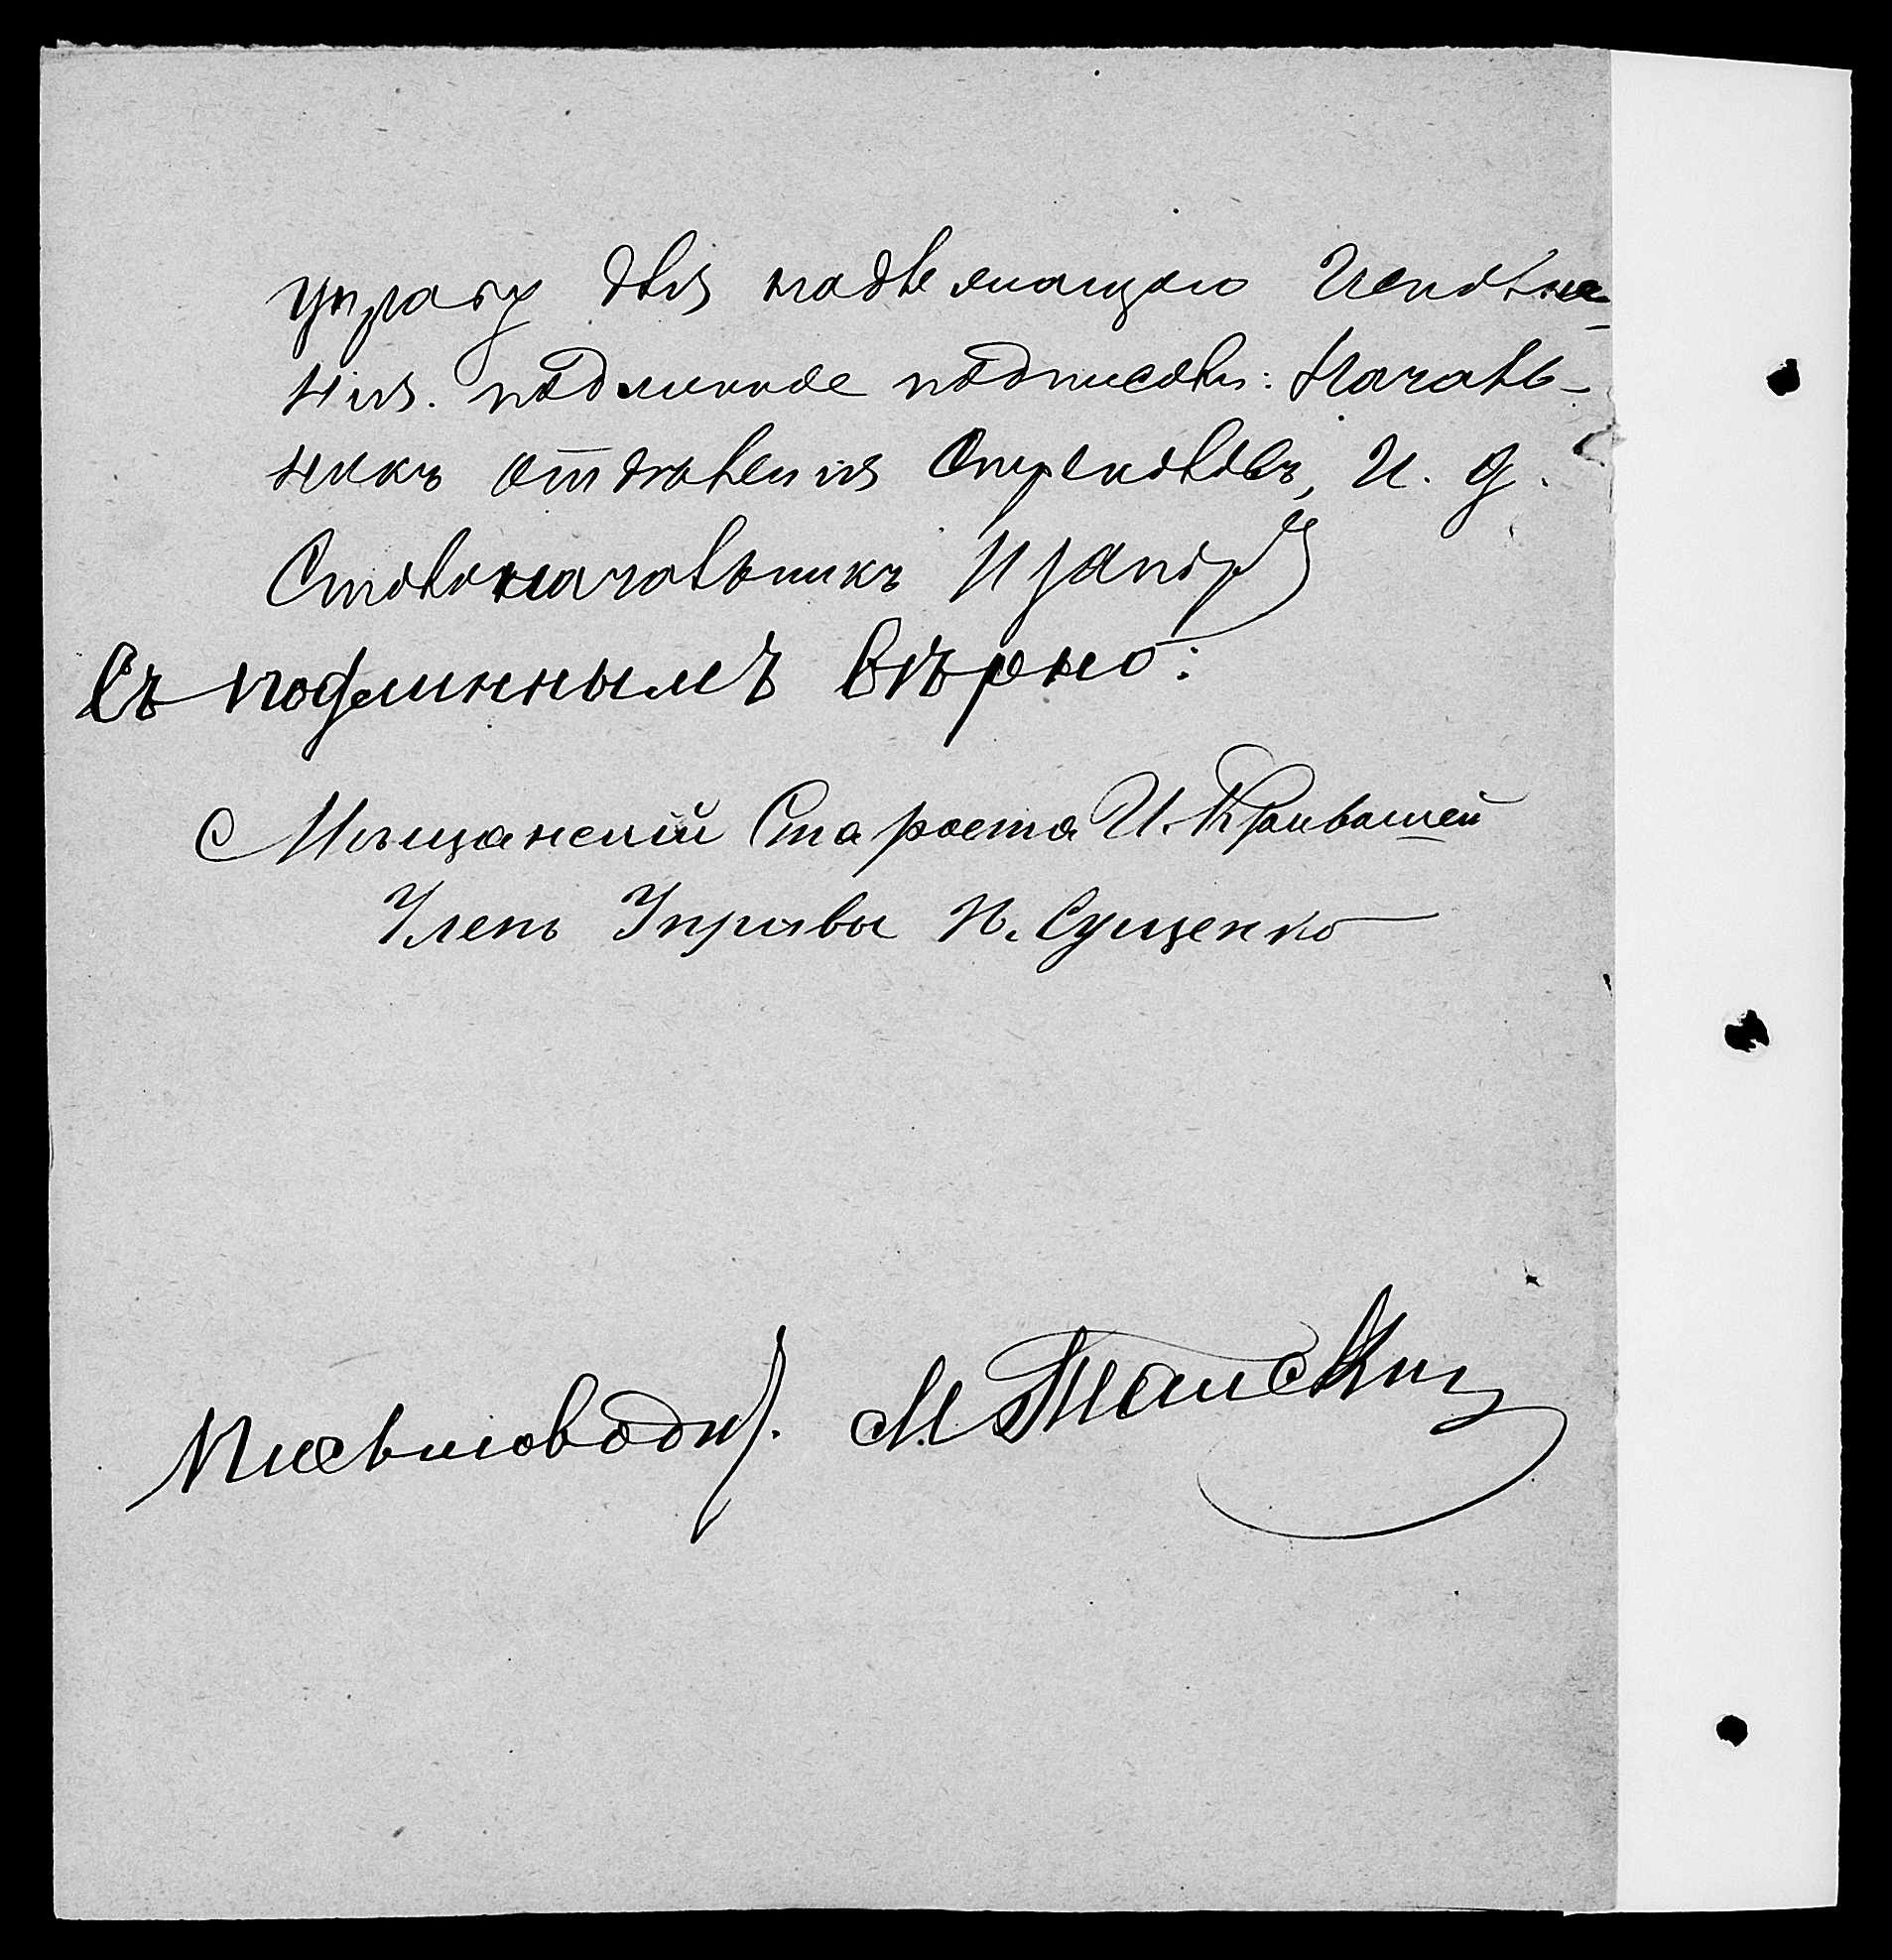 управу для надлежащаго исполне-
нія. подлинное подписали: Началь-
никъ отдѣленія Стрекаловъ, И. д.
Столоначальникъ
Съ подлиннымъ вѣрно:
Мѣщанскій Староста И.
Членъ Управы И. Сущенко
Письмовод. М.